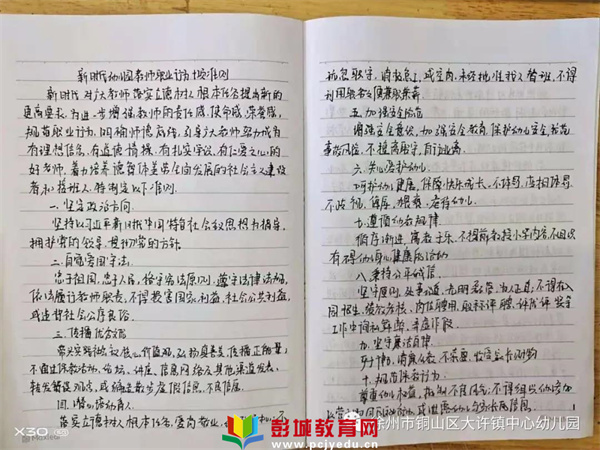 新时代幼儿园教师职业行为十项准则
新时代对广大教师落实立德树人根本任务提出新的
更高要求,为进一步增强教师的责任感、使命感、荣誉感,
规范职业行为,明确师德底线,引导广大教师努力成为
有理想信念、有道德情操、有扎实学识、有仁爱之心的
好老师,着力培养德智体美劳全面发展的社会主义建设
者和接班人,特制定以下准则。
一、坚定政治方向
坚持以习近平新时代中国特色社会主义思想为指导,
拥护党的领导,贯彻党的方针
二、自觉爱国守法
忠于祖国,忠于人民,恪守宪法原则,遵守法律法规,
依法履行教师职责,不得损害国家利益,社会公共利益,
或违背社会公序良俗
三、传播优秀文化
带头践行社会主义核心价值观,弘扬真善美,传播正能量,
不通过保教活动、论坛、讲座、信息网络及其他渠道发表,
转发错误观点,或编造散布虚假信息、不良信息。
四、潜心培幼育人
落实立德树人根本任务,爱岗敬业,
利用职务之便兼职兼薪
五、加强安全防范
增强安全意识,加强安全教育,保护幼儿安全,防范
事故风险,不擅离职守,自行逃离
六、关心爱护幼儿
呵护幼儿健康,保障快乐成长,
七、遵循幼教规律
循序渐进,寓教于乐,不提前教授小学内容,不组织
有碍幼儿身心健康的活动
八、秉持公平诚信
坚持原则,处事公道,光明磊落,为人正直;不得在入
工作中徇私舞弊、弄虚作假
九、坚守廉洁自律
十、规范保教行为
尊重幼儿权益,抵制不良风气;不得组织幼儿参加
X30
彭城教育网
www.pcjyedu.cn
徐州市铜山区大许镇中心幼儿园